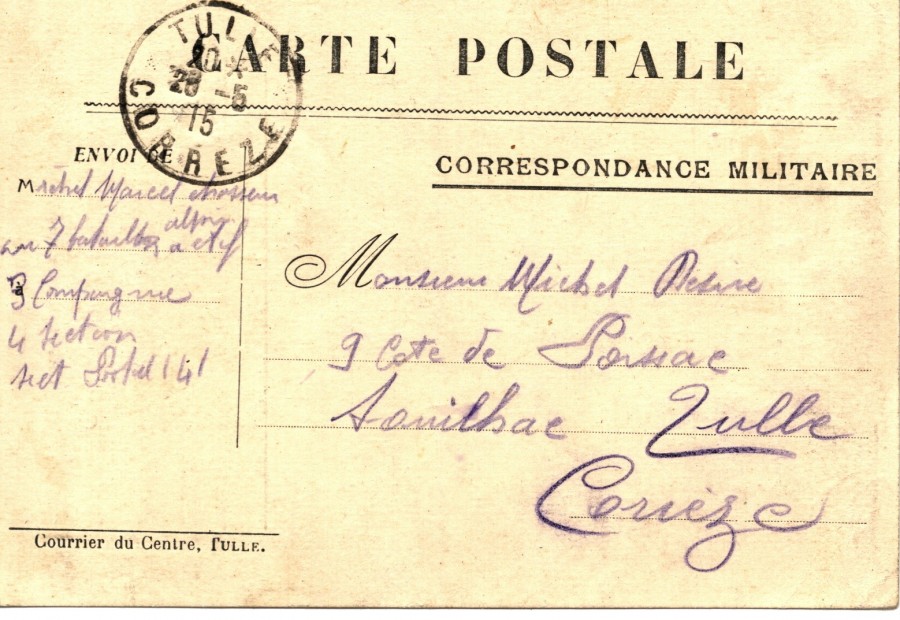 CARTE POSTALE
TULLE
20
28 -5
15
CORREZE
ENVOI DE
CORRESPONDANCE MILITAIRE
Michel Marcel chasseur
au 7 bataillon alpin actif
3 Compagnie
4 section
sect Postal 141
Monsieur Michel
9 Cote de
Souilhac Tulle
Corrèze
Courrier du Centre, TULLE.